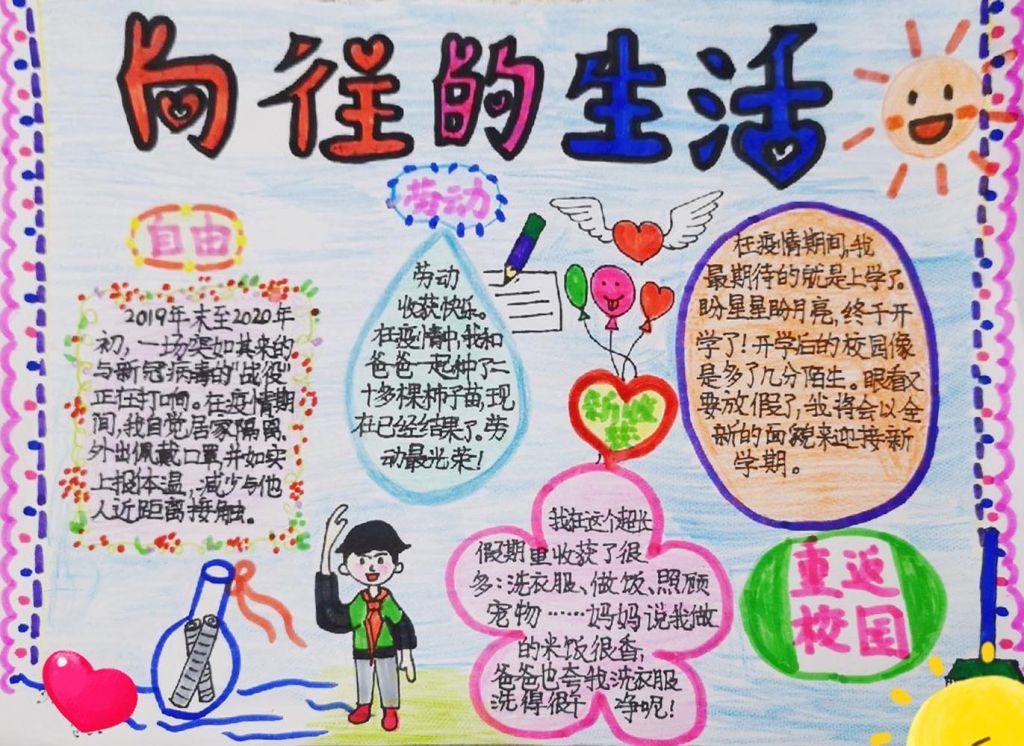 向往的生活
自由
2019年末至2020年
初，一场突如其来的
与新冠病毒的"战役"
正在打响。在疫情期
间，我自觉居家隔离、
外出佩戴口罩，并如实
上报体温，减少与他
人近距离接触。
劳动
劳动
收获快乐。
在疫情中，我和
爸爸一起种了二
十多棵柿子苗，现
在已经结果了。劳
动最光荣！
新收
获
我在这个超长
假期里收获了很
多：洗衣服、做饭、照顾
宠物……妈妈说我做
的米饭很香，
爸爸也夸我洗衣服
洗得很干净呢！
在疫情期间，我
最期待的就是上学了。
盼星星盼月亮，终于开
学了！开学后的校园像
是多了几分陌生。眼看又
要放假了，我将会以全
新的面貌来迎接新
学期。
重返
校园